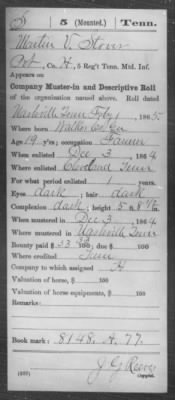 S 5 (Mounted.) Tenn.
Martin V. Stover
Pvt, Co. H, 5 Reg't Tenn. Mtd. Inf.
Appears on
Company Muster-in and Descriptive Roll
of the organization named above. Roll dated
Nashville Tenn Feby 1, 1865.
Where born Walker Co. Ga
Age 19 y'rs; occupation Farmer
When enlisted Dec 3, 1864
Where enlisted Cleveland Tenn
For what period enlisted 1 years.
Eyes dark; hair dark
Complexion dark; height 5 ft. 8 in.
When mustered in Dec 3, 1864
Where mustered in Nashville Tenn
Bounty paid $ 33 100; due $ 100
Where credited Tenn
Company to which assigned H
Valuation of horse, $ 100
Valuation of horse equipments, $ 100
Remarks:
Book mark: 8148. A. 77.
J G Reeves
Copyist.